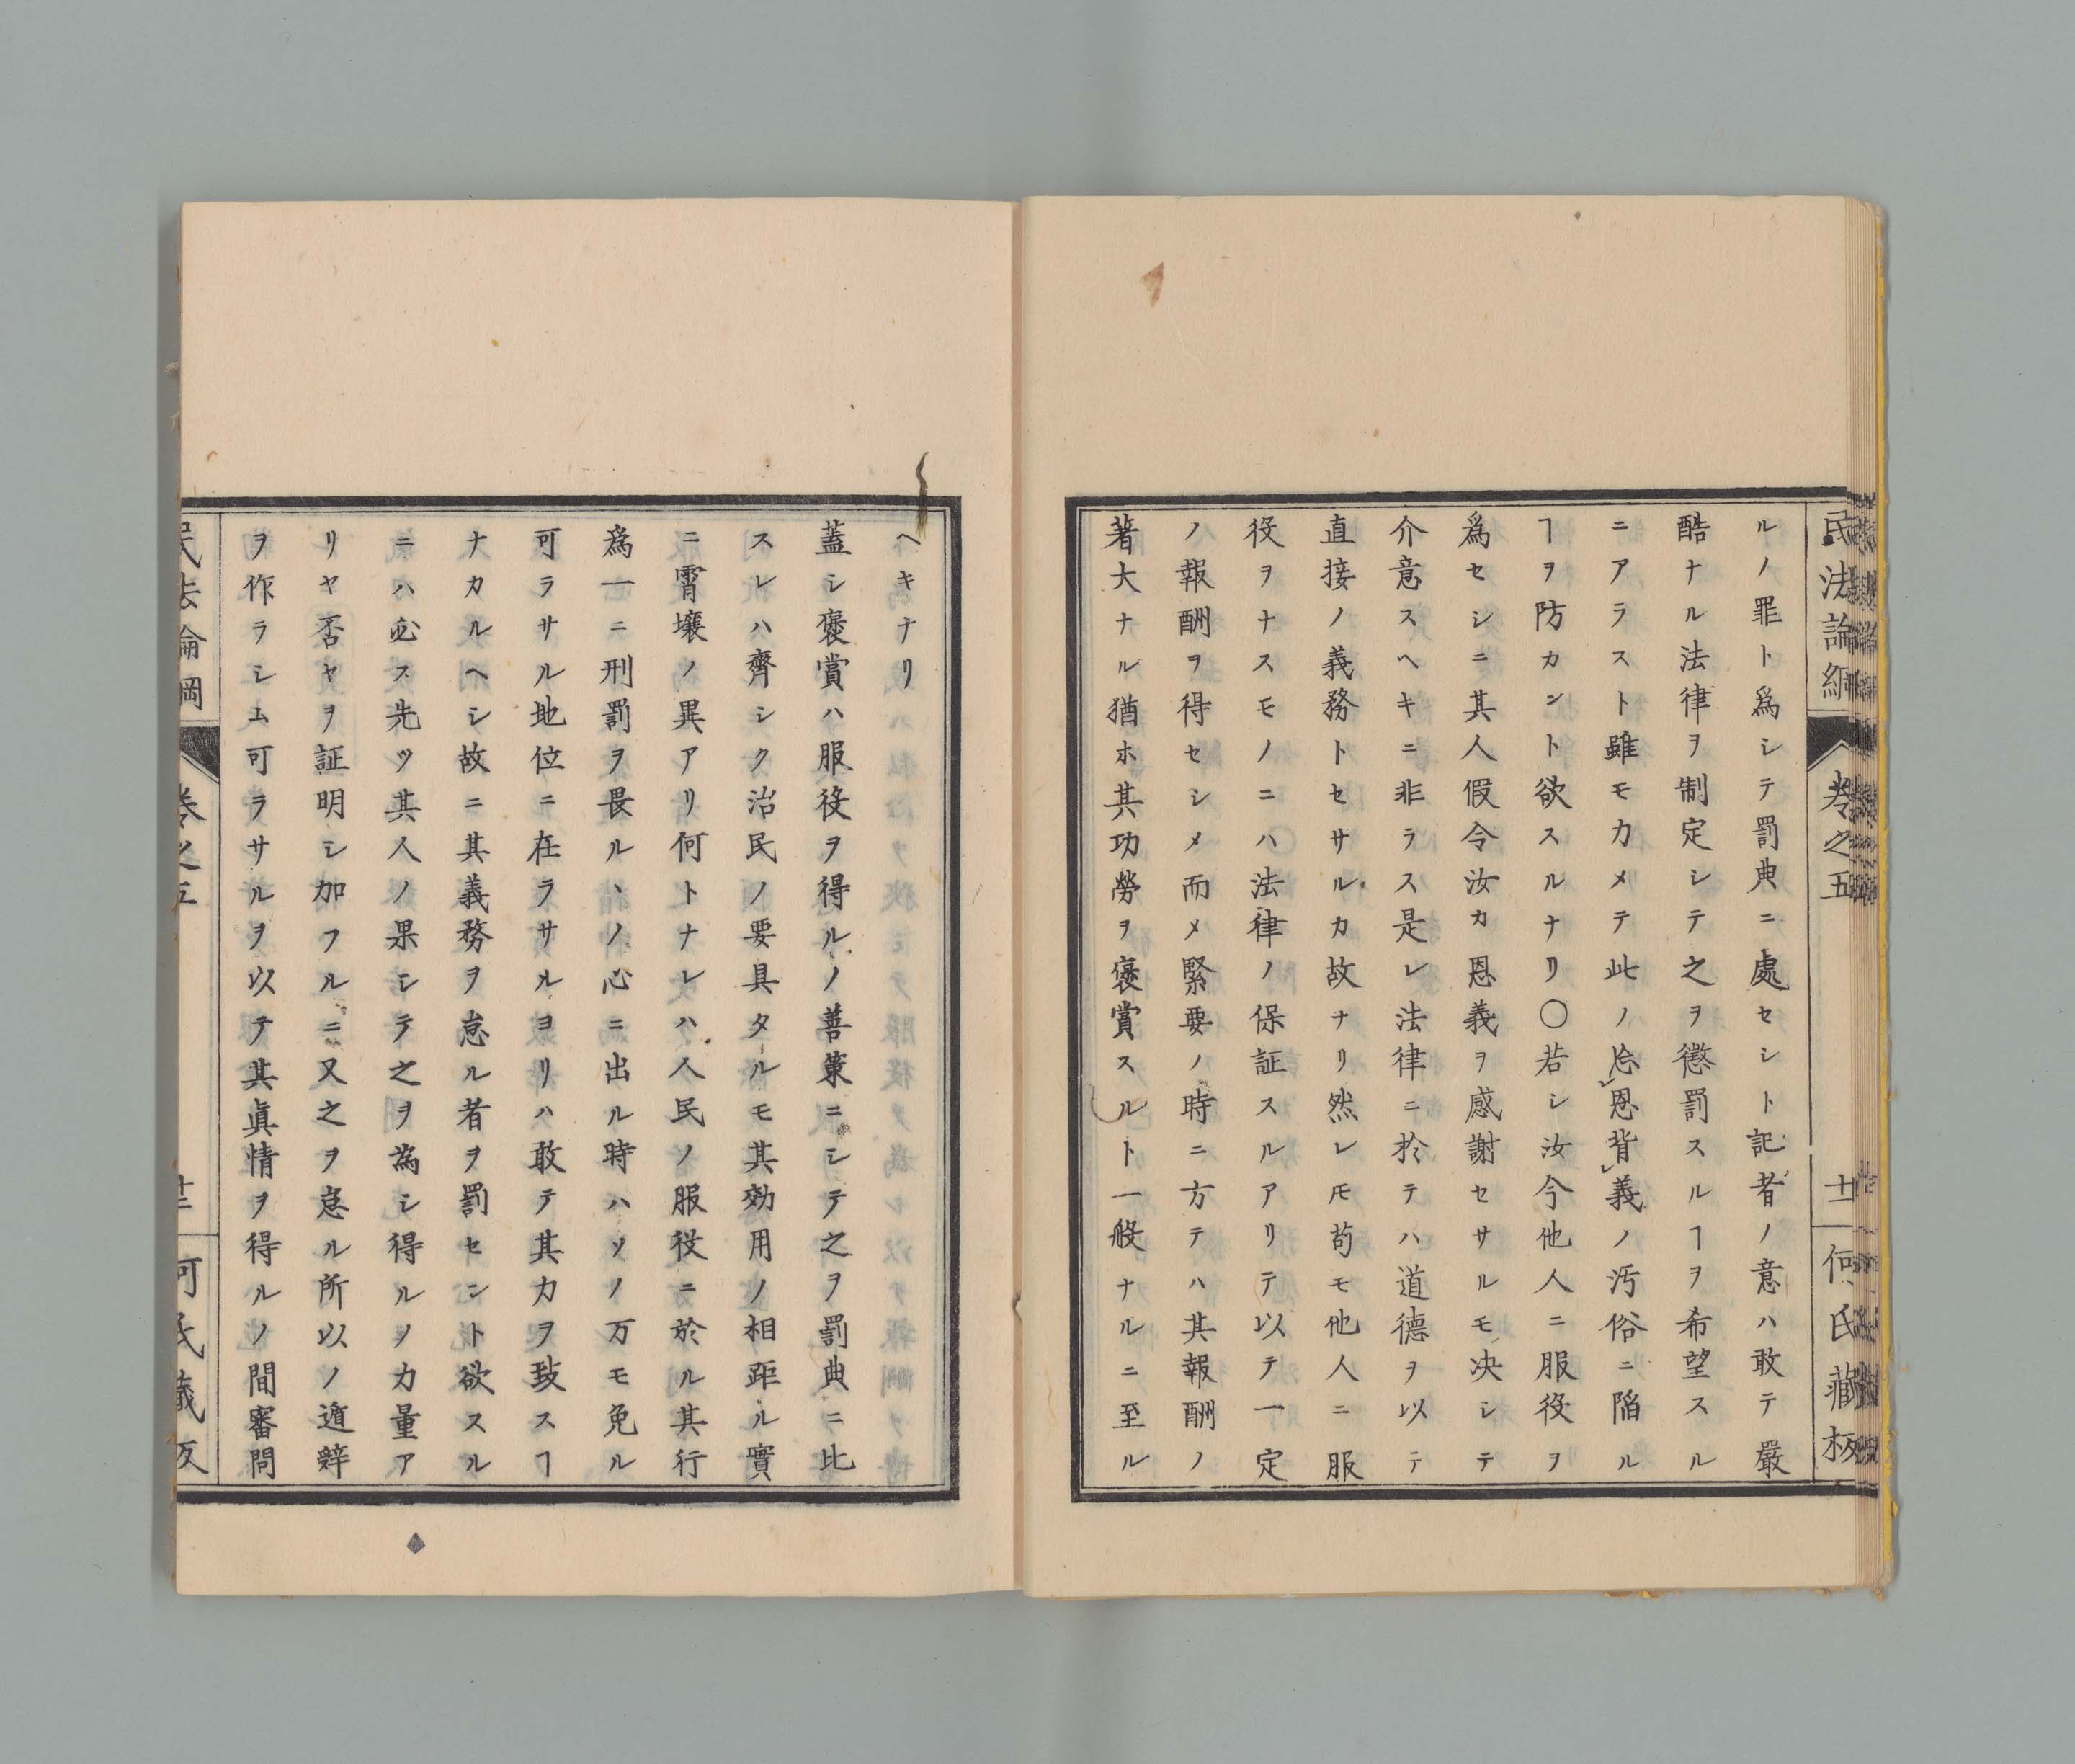 民法論綱
卷之五
十一
何氏藏板
ルノ罪ト爲シテ罰典ニ處セシト記者ノ意ハ敢テ嚴
酷ナル法律ヲ制定シテ之ヲ懲罰スルヿヲ希望スル
ニアラスト雖モカメテ此ノ忘恩背義ノ汚俗ニ陷ル
ヿヲ防カント欲スルナリ〇若シ汝今他人ニ服役ヲ
爲セシニ其人假令汝カ恩義ヲ感謝セサルモ决シテ
介意スヘキニ非ラス是レ法律ニ於テハ道德ヲ以テ
直接ノ義務トセサルカ故ナリ然レ𪜈苟モ他人ニ服
役ヲナスモノニハ法律ノ保証スルアリテ以テ一定
ノ報酬ヲ得セシメ而メ緊要ノ時ニ方テハ其報酬ノ
著大ナル猶ホ其功勞ヲ褒賞スルト一般ナルニ至ル
ヘキナリ
蓋シ褒賞ハ服役ヲ得ルノ善策ニシテ之ヲ罰典ニ比
スレハ齊シク治民ノ要具タルモ其効用ノ相距ル實
ニ霄壤ノ異アリ何トナレハ人民ノ服役ニ於ル其行
爲一ニ刑罰ヲ畏ルヽノ心ニ出ル時ハソノ万モ免ル
可ラサル地位ニ在ラサルヨリハ敢テ其力ヲ致スヿ
ナカルヘシ故ニ其義務ヲ怠ル者ヲ罰セント欲スル
ニハ必ス先ツ其人ノ果シテ之ヲ爲シ得ルノ力量ア
リヤ否ヤヲ証明シ加フルニ又之ヲ怠ル所以ノ遁辭
ヲ作ラシム可ラサルヲ以テ其眞情ヲ得ルノ間審問
民法論綱
卷之五
十二
何氏藏板